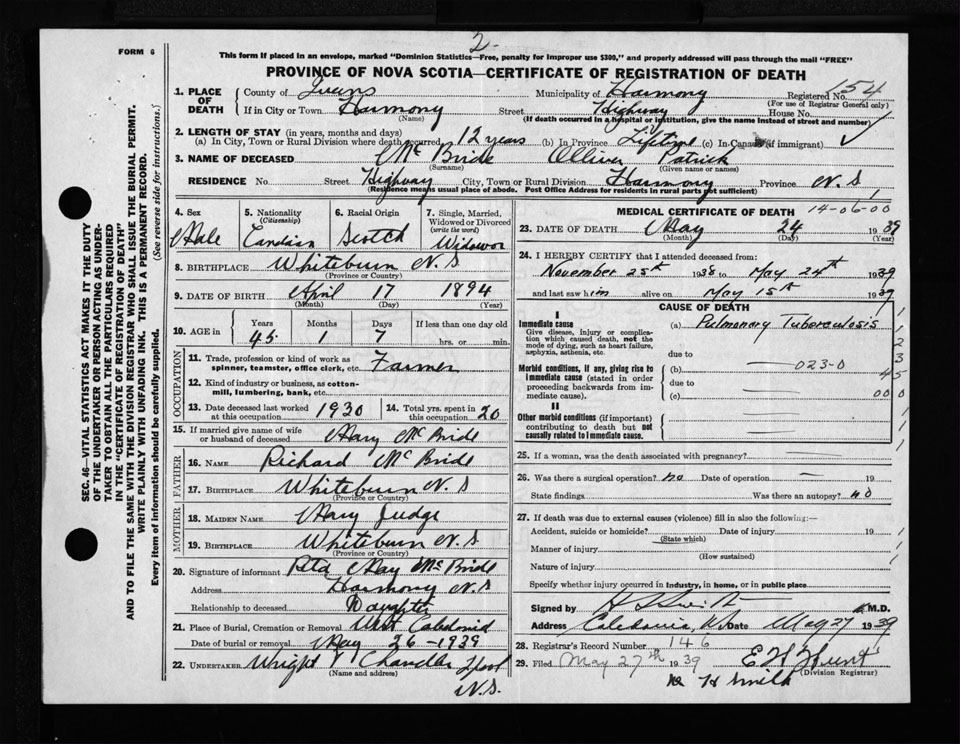 2-
FORM 6
This form If placed in an envelope, marked "Dominion Statistics—Free, penalty for improper use $300," and properly addressed will pass through the mail "FREE"
PROVINCE OF NOVA SCOTIA—CERTIFICATE OF REGISTRATION OF DEATH
SEC. 46—VITAL STATISTICS ACT MAKES IT THE DUTY
OF THE UNDERTAKER OR PERSON ACTING AS UNDER-
TAKER TO OBTAIN ALL THE PARTICULARS REQUIRED
IN THE "CERTIFICATE OF REGISTRATION OF DEATH"
AND TO FILE THE SAME WITH THE DIVISION REGISTRAR WHO SHALL ISSUE THE BURIAL PERMIT.
WRITE PLAINLY WITH UNFADING INK. THIS IS A PERMANENT RECORD.
Every item of information should be carefully supplied. (See reverse side for instructions.)
1. PLACE OF DEATH County of Queens Municipality of Harmony Registered No. 154
(For use of Registrar General only)
If in City or Town Harmony Street Highway House No.
(Name) (If death occurred in a hospital or institution, give the name instead of street and number)
2. LENGTH OF STAY (in years, months and days)
(a) In City, Town or Rural Division where death occurred 12 years (b) In Province Lifetime (c) In Canada (if immigrant)
3. NAME OF DECEASED McBride Olliver Patrick
(Surname) (Given name or names)
RESIDENCE No. Street Highway City, Town or Rural Division Harmony Province N.S
(Residence means usual place of abode. Post Office Address for residents in rural parts not sufficient)
4. Sex Male
5. Nationality (Citizenship) Candian
6. Racial Origin Scotch
7. Single, Married, Widowed or Divorced (write the word) Widowor
8. BIRTHPLACE Whiteburn N.S
(Province or Country)
9. DATE OF BIRTH April 17 1894
(Month) (Day) (Year)
10. AGE in Years Months Days If less than one day old
45 1 7 hrs. or min.
OCCUPATION
11. Trade, profession or kind of work as spinner, teamster, office clerk, etc. Farmer
12. Kind of industry or business, as cotton-mill, lumbering, bank, etc.
13. Date deceased last worked at this occupation 1930
14. Total yrs. spent in this occupation 20
15. If married give name of wife or husband of deceased Mary McBride
FATHER
16. NAME Richard McBride
17. BIRTHPLACE Whiteburn N.S
(Province or Country)
MOTHER
18. MAIDEN NAME Mary Judge
19. BIRTHPLACE Whiteburn N.S
(Province or Country)
20. Signature of informant Rita May McBride
Address Harmony N.S
Relationship to deceased Daughter
21. Place of Burial, Cremation or Removal West Caledonia
Date of burial or removal May 26-1939
22. UNDERTAKER Wright Chandler Lpool
(Name and address)
N.S.
MEDICAL CERTIFICATE OF DEATH 14-06-00
23. DATE OF DEATH May 24 1939
(Month) (Day) (Year)
24. I HEREBY CERTIFY that I attended deceased from:
November 25th 1938 to May 24th 1939
and last saw him alive on May 15th 1939
CAUSE OF DEATH
I
Immediate cause
Give disease, injury or complication which caused death, not the mode of dying, such as heart failure, asphyxia, asthenia, etc.
(a) Pulmonary Tuberculosis
due to
Morbid conditions, if any, giving rise to immediate cause (stated in order proceeding backwards from immediate cause).
(b) 023-0
due to
(c)
II
Other morbid conditions (if important) contributing to death but not causally related to immediate cause.
25. If a woman, was the death associated with pregnancy?
26. Was there a surgical operation? no Date of operation 19
State findings Was there an autopsy? no
27. If death was due to external causes (violence) fill in also the following:—
Accident, suicide or homicide? Date of injury 19
(State which)
Manner of injury
(How sustained)
Nature of injury
Specify whether injury occurred in industry, in home, or in public place
Signed by M.D.
Address Caledonia, N.S Date May 27 1939
28. Registrar's Record Number 146
29. Filed May 27th 1939 E H Hunt
(Division Registrar)
H Smith